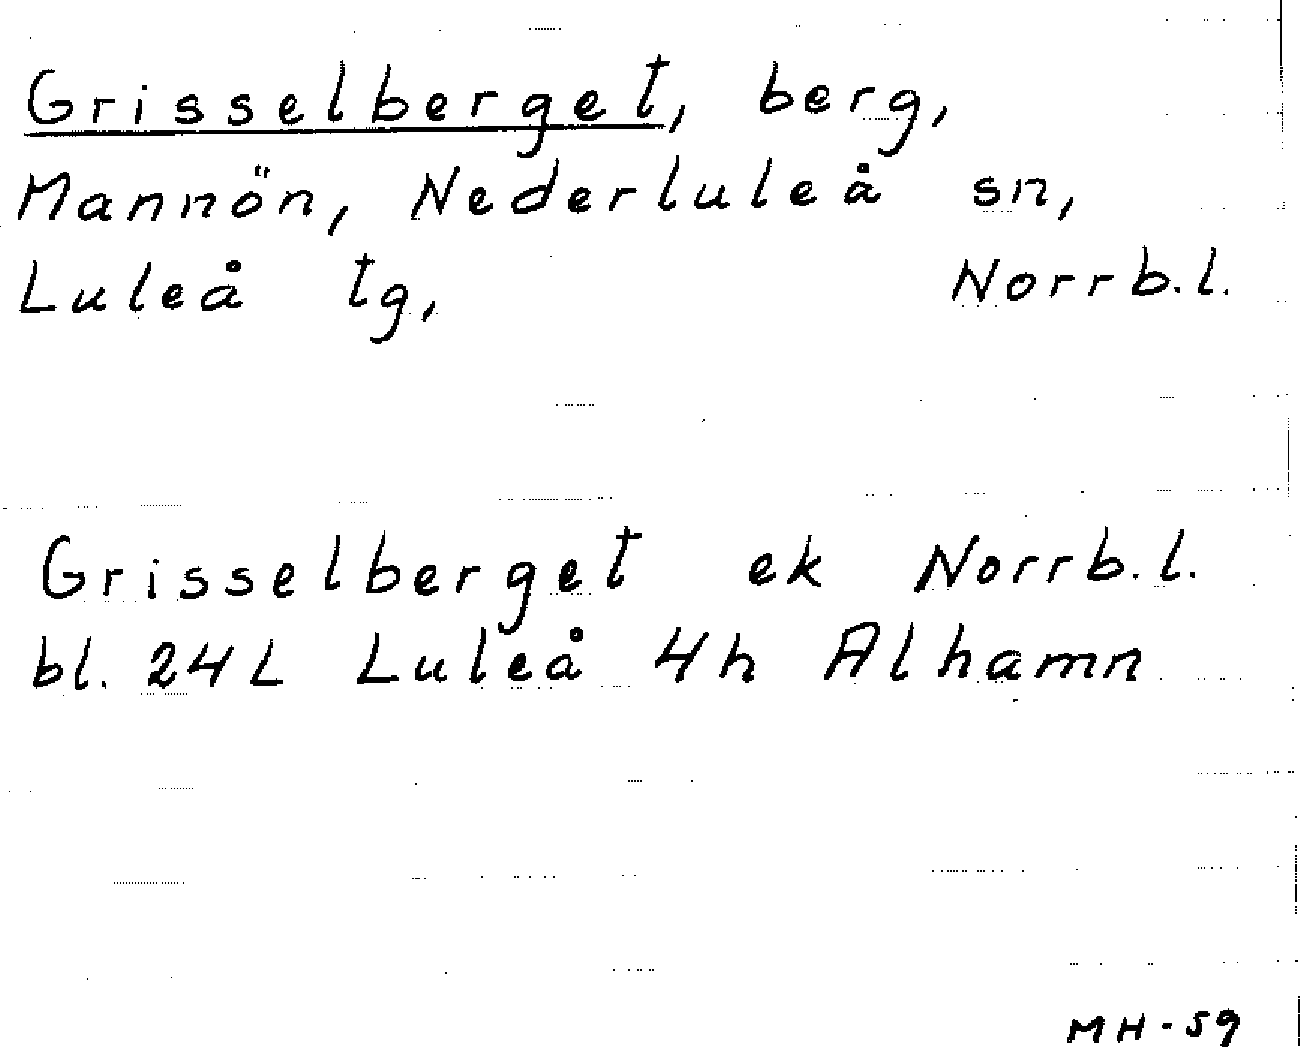 Grisselberget, berg,
Mannön, Nederluleå sn,
Luleå tg, Norrb.l.
Grisselberget ek Norrb.l.
bl. 24L Luleå 4h Alhamn
MH-59